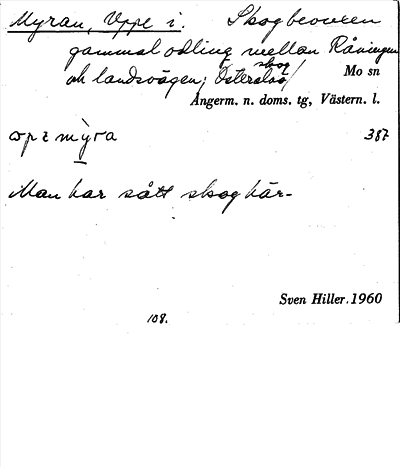 Myran, Uppe i. Skogbevuxen
gammal odling mellan Råningen
och landsvägen; Österskog/
Mo sn
Ångerm. n. doms. tg, Västern. l.
387
Man har sått skog här-
Sven Hiller. 1960
108.